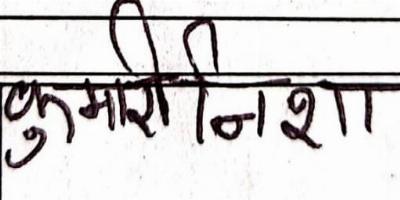 कुमारी निशा